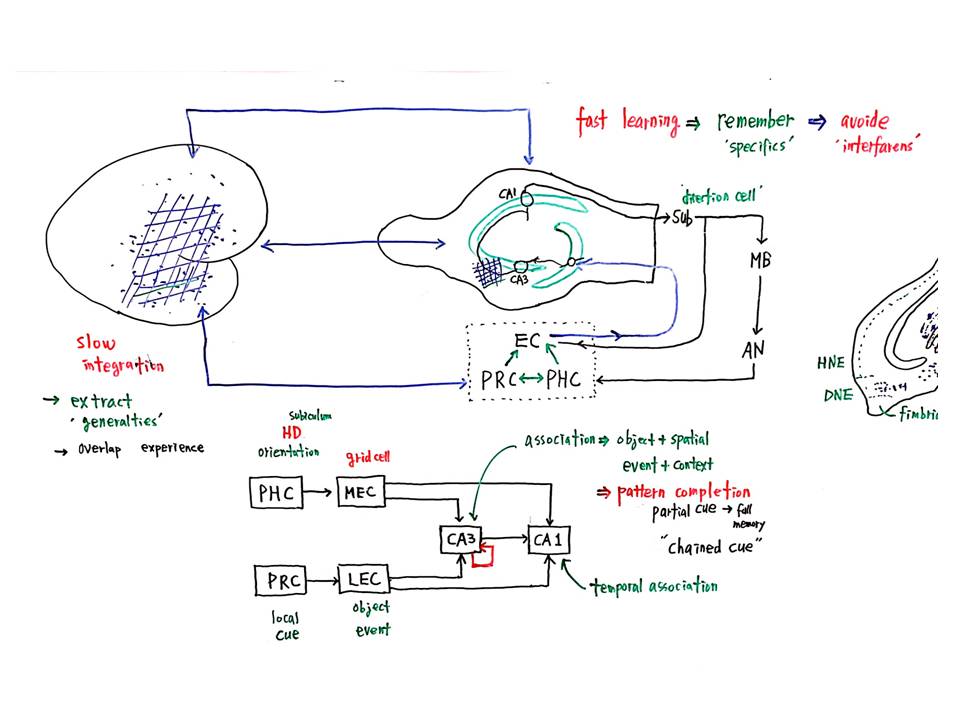 fast learning ⇒ remember ⇒ avoide
'specifics' 'interfarens'
CA1
'direction cell'
Sub
MB
CA3
EC
AN
PRC ↔ PHC
slow
integration
→ extract
'generalties'
→ overlap experience
HNE
DNE
fimbri
subiculum
HD
orientation
grid cell
PHC → MEC
association ⇒ object + spatial
event + context
⇒ pattern completion
partial cue → full
memory
"chained cue"
CA3 → CA1
PRC → LEC
temporal association
local
cue
object
event